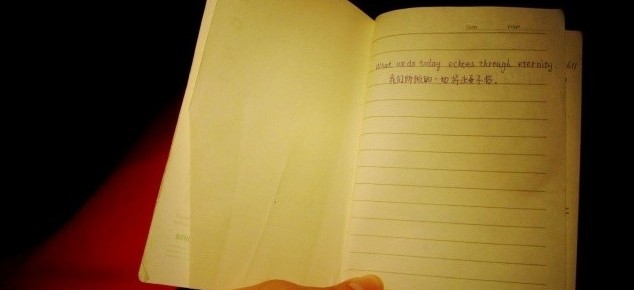 What we do today echoes through eternity.
我们所做的一切将永垂不朽.